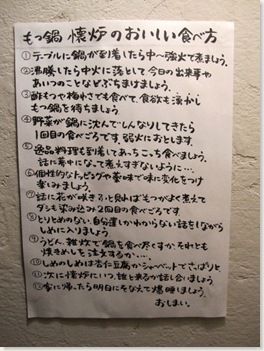 もつ鍋 懐炉のおいしい食べ方
①テーブルに鍋が到着したら中〜強火で煮ましょう。
②沸騰したら中火に落として、今日の出来事や
あいつのことなどぶちまけましょう。
③酢もつや梅水でも食べて、食欲も沸かし
もつ鍋を待ちましょう
④野菜が鍋に沈んでしんなりしてきたら
1回目の食べごろです。弱火におとします。
⑤逸品料理も到着してあっちこっち食べましょう。
話に夢中になって煮えすぎないように…。
⑥個性的なトッピングや薬味で味に変化をつけ
楽しみましょう。
⑦話に花が咲きそっと見ればもつがよく煮えて
ダシも染み込み2回目の食べごろです
⑧とりとめのない、自分達しかわからない話をしながら
しめに入りましょう
⑨うどん、雑炊で鍋を食べ尽くすか、それとも
焼きめしを注文するか…。
⑩しめのしめは杏仁豆腐かシャーベットでさっぱりと。
⑪次に懐炉にいつ、誰と来るか話し合いましょう
⑫家に帰ったら明日にそなえて爆睡しましょう。
おしまい。